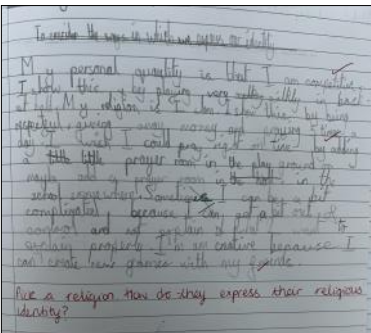 To consider the ways in which we express our identity
My personal quality is that I am competitive.
I show this by playing very silly in basket
ball. My religion is I show this by being
respectful, giving away money and praying 5 times a
day. I wish I could pray right on time by adding
a little prayer room in the play ground or
maybe add a prayer room in the
school somewhere. Sometimes I can be a bit
complicated because it can get a bit out of
control and not explain
properly. I am creative because I
can create new games with my friends.
Pick a religion. How do they express their religious
identity?